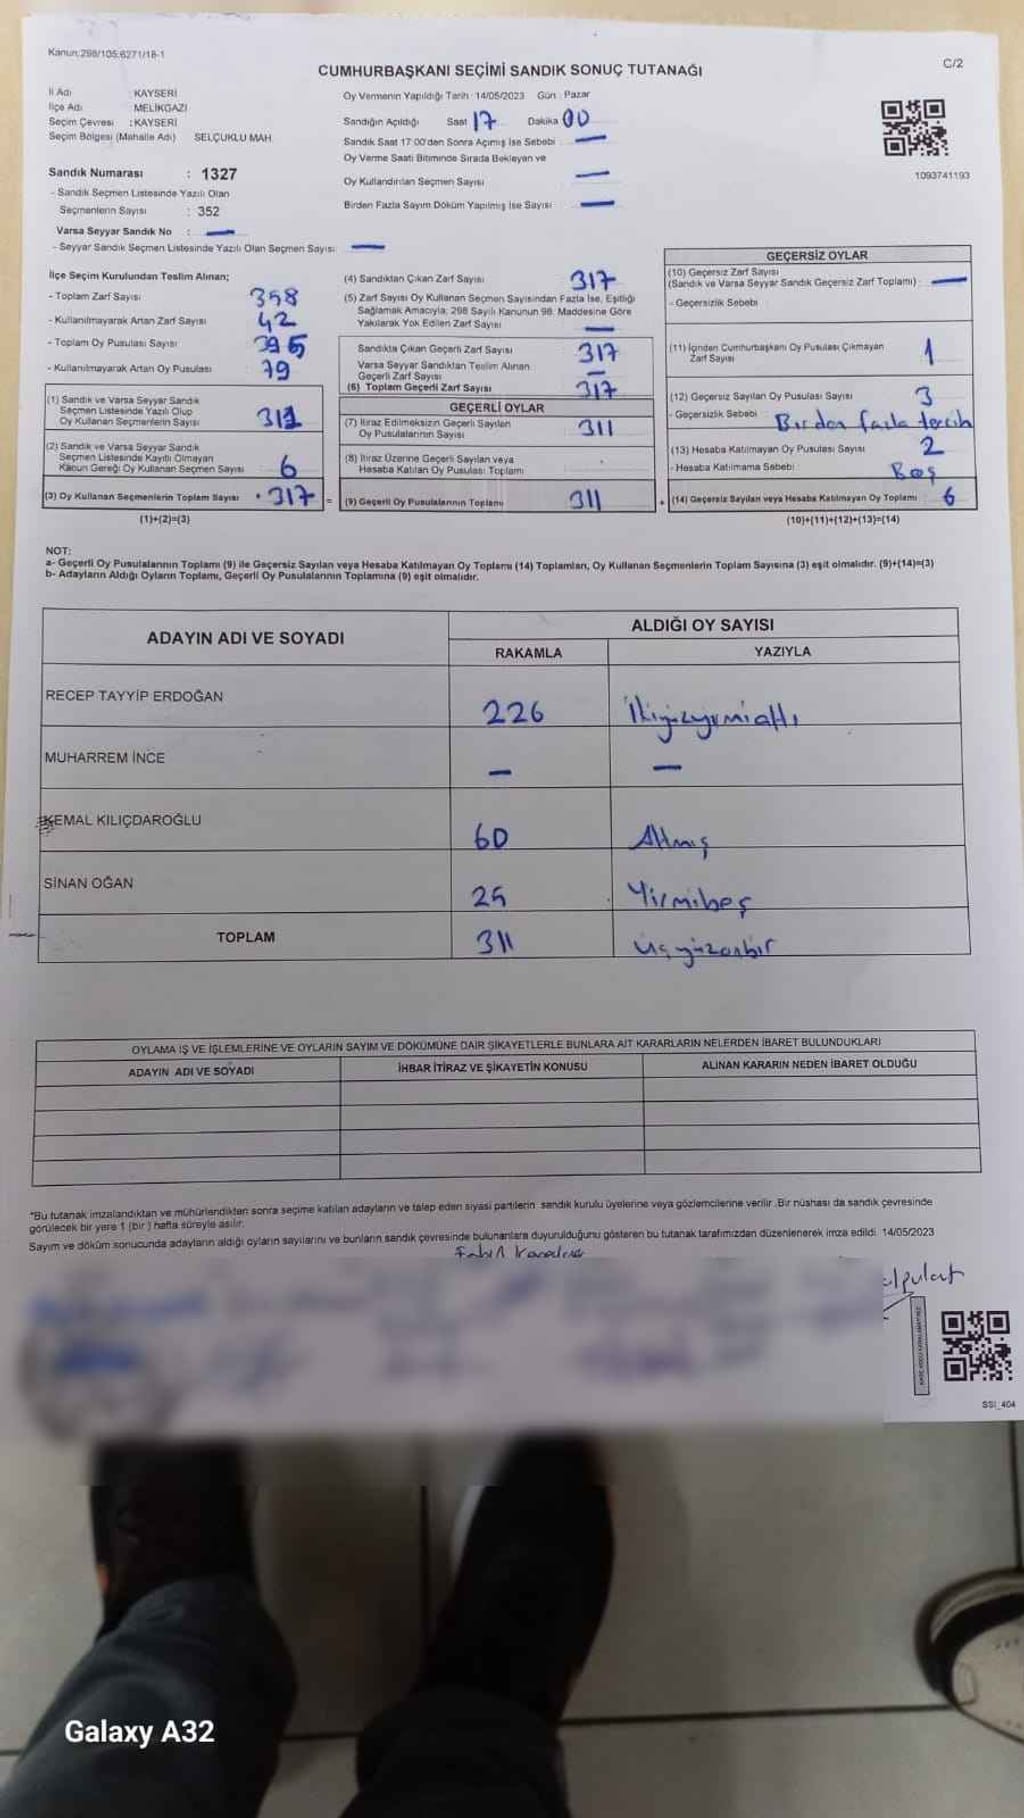 Kanun:298/105;6271/18-1
C/2
CUMHURBAŞKANI SEÇİMİ SANDIK SONUÇ TUTANAĞI
İl Adı : KAYSERİ
İlçe Adı : MELİKGAZİ
Seçim Çevresi : KAYSERİ
Seçim Bölgesi (Mahalle Adı) SELÇUKLU MAH.
Oy Vermenin Yapıldığı Tarih : 14/05/2023 Gün : Pazar
Sandığın Açıldığı Saat 17 Dakika 00
Sandık Saat 17:00'den Sonra Açımış İse Sebebi : —
Oy Verme Saati Bitiminde Sırada Bekleyen ve
Oy Kullandırılan Seçmen Sayısı : —
Birden Fazla Sayım Döküm Yapılmış İse Sayısı : —
1093741193
Sandık Numarası : 1327
- Sandık Seçmen Listesinde Yazılı Olan
Seçmenlerin Sayısı : 352
Varsa Seyyar Sandık No : —
- Seyyar Sandık Seçmen Listesinde Yazılı Olan Seçmen Sayısı: —
İlçe Seçim Kurulundan Teslim Alınan;
- Toplam Zarf Sayısı 358
- Kullanılmayarak Artan Zarf Sayısı 42
- Toplam Oy Pusulası Sayısı 395
- Kullanılmayarak Artan Oy Pusulası 79
(1) Sandık ve Varsa Seyyar Sandık
Seçmen Listesinde Yazılı Olup
Oy Kullanan Seçmenlerin Sayısı 311
(2) Sandık ve Varsa Seyyar Sandık
Seçmen Listesinde Kayıtlı Olmayan
Kanun Gereği Oy Kullanan Seçmen Sayısı 6
(3) Oy Kullanan Seçmenlerin Toplam Sayısı 317 =
(1)+(2)=(3)
(4) Sandıktan Çıkan Zarf Sayısı 317
(5) Zarf Sayısı Oy Kullanan Seçmen Sayısından Fazla İse, Eşitliği
Sağlamak Amacıyla; 298 Sayılı Kanunun 98. Maddesine Göre
Yakılarak Yok Edilen Zarf Sayısı —
Sandıkta Çıkan Geçerli Zarf Sayısı 317
Varsa Seyyar Sandıktan Teslim Alınan
Geçerli Zarf Sayısı —
(6) Toplam Geçerli Zarf Sayısı 317
GEÇERLİ OYLAR
(7) İtiraz Edilmeksizin Geçerli Sayılan
Oy Pusulalarının Sayısı 311
(8) İtiraz Üzerine Geçerli Sayılan veya
Hesaba Katılan Oy Pusulası Toplamı
(9) Geçerli Oy Pusulalarının Toplamı 311 +
GEÇERSİZ OYLAR
(10) Geçersiz Zarf Sayısı
(Sandık ve Varsa Seyyar Sandık Geçersiz Zarf Toplamı) : —
- Geçersizlik Sebebi
(11) İçinden Cumhurbaşkanı Oy Pusulası Çıkmayan
Zarf Sayısı 1
(12) Geçersiz Sayılan Oy Pusulası Sayısı 3
- Geçersizlik Sebebi : Birden fazla tercih
(13) Hesaba Katılmayan Oy Pusulası Sayısı 2
- Hesaba Katılmama Sebebi : Boş
(14) Geçersiz Sayılan veya Hesaba Katılmayan Oy Toplamı 6
(10)+(11)+(12)+(13)=(14)
NOT:
a- Geçerli Oy Pusulalarının Toplamı (9) ile Geçersiz Sayılan veya Hesaba Katılmayan Oy Toplamı (14) Toplamları, Oy Kullanan Seçmenlerin Toplam Sayısına (3) eşit olmalıdır. (9)+(14)=(3)
b- Adayların Aldığı Oyların Toplamı, Geçerli Oy Pusulalarının Toplamına (9) eşit olmalıdır.
ADAYIN ADI VE SOYADI ALDIĞI OY SAYISI
RAKAMLA YAZIYLA
RECEP TAYYİP ERDOĞAN 226 İkiyüzyirmialtı
MUHARREM İNCE — —
KEMAL KILIÇDAROĞLU 60 Altmış
SİNAN OĞAN 25 Yirmibeş
TOPLAM 311 üçyüzonbir
OYLAMA İŞ VE İŞLEMLERİNE VE OYLARIN SAYIM VE DÖKÜMÜNE DAİR ŞİKAYETLERLE BUNLARA AİT KARARLARIN NELERDEN İBARET BULUNDUKLARI
ADAYIN ADI VE SOYADI İHBAR İTİRAZ VE ŞİKAYETİN KONUSU ALINAN KARARIN NEDEN İBARET OLDUĞU
*Bu tutanak imzalandıktan ve mühürlendikten sonra seçime katılan adayların ve talep eden siyasi partilerin sandık kurulu üyelerine veya gözlemcilerine verilir. Bir nüshası da sandık çevresinde
görülecek bir yere 1 (bir) hafta süreyle asılır.
Sayım ve döküm sonucunda adayların aldığı oyların sayılarını ve bunların sandık çevresinde bulunanlara duyurulduğunu gösteren bu tutanak tarafımızdan düzenlenerek imza edildi. 14/05/2023
SSI_404
Galaxy A32